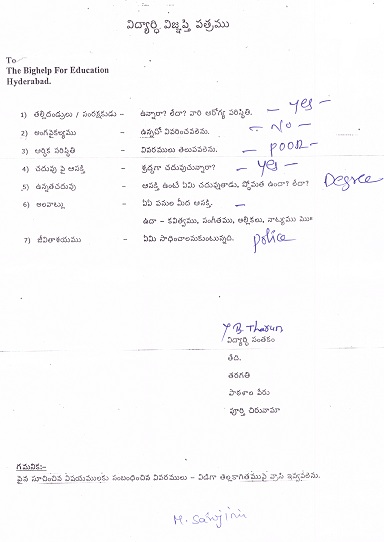 విద్యార్ధి విజ్ఞప్తి పత్రము
To
The Bighelp For Education
Hyderabad.
1) తల్లిదండ్రులు / సంరక్షకుడు – ఉన్నారా? లేదా? వారి ఆరోగ్య పరిస్థితి. – yes –
2) అంగవైకల్యము – ఉన్నచో వివరించవలెను. – NO –
3) ఆర్ధిక పరిస్థితి – వివరములు తెలుపవలెను. – poor –
4) చదువు పై ఆసక్తి – శ్రద్ధగా చదువుచున్నారా? – yes –
5) ఉన్నతచదువు – ఆసక్తి ఉంటే ఏమి చదువుతాడు, స్తోమత ఉందా? లేదా? Degree
6) అలవాట్లు – ఏఏ పనుల మీద ఆసక్తి. –
ఉదా – కవిత్వము, సంగీతము, అల్లికలు, నాట్యము మొ॥
7) జీవితాశయము – ఏమి సాధించాలనుకుంటున్నది. police
Y B Tharun
విద్యార్ధి సంతకం
తేది.
తరగతి
పాఠశాల పేరు
పూర్తి చిరునామా
గమనిక:-
పైన సూచించిన విషయములకు సంబంధించిన వివరములు – విడిగా తెల్లకాగితముపై వ్రాసి ఇవ్వవలెను.